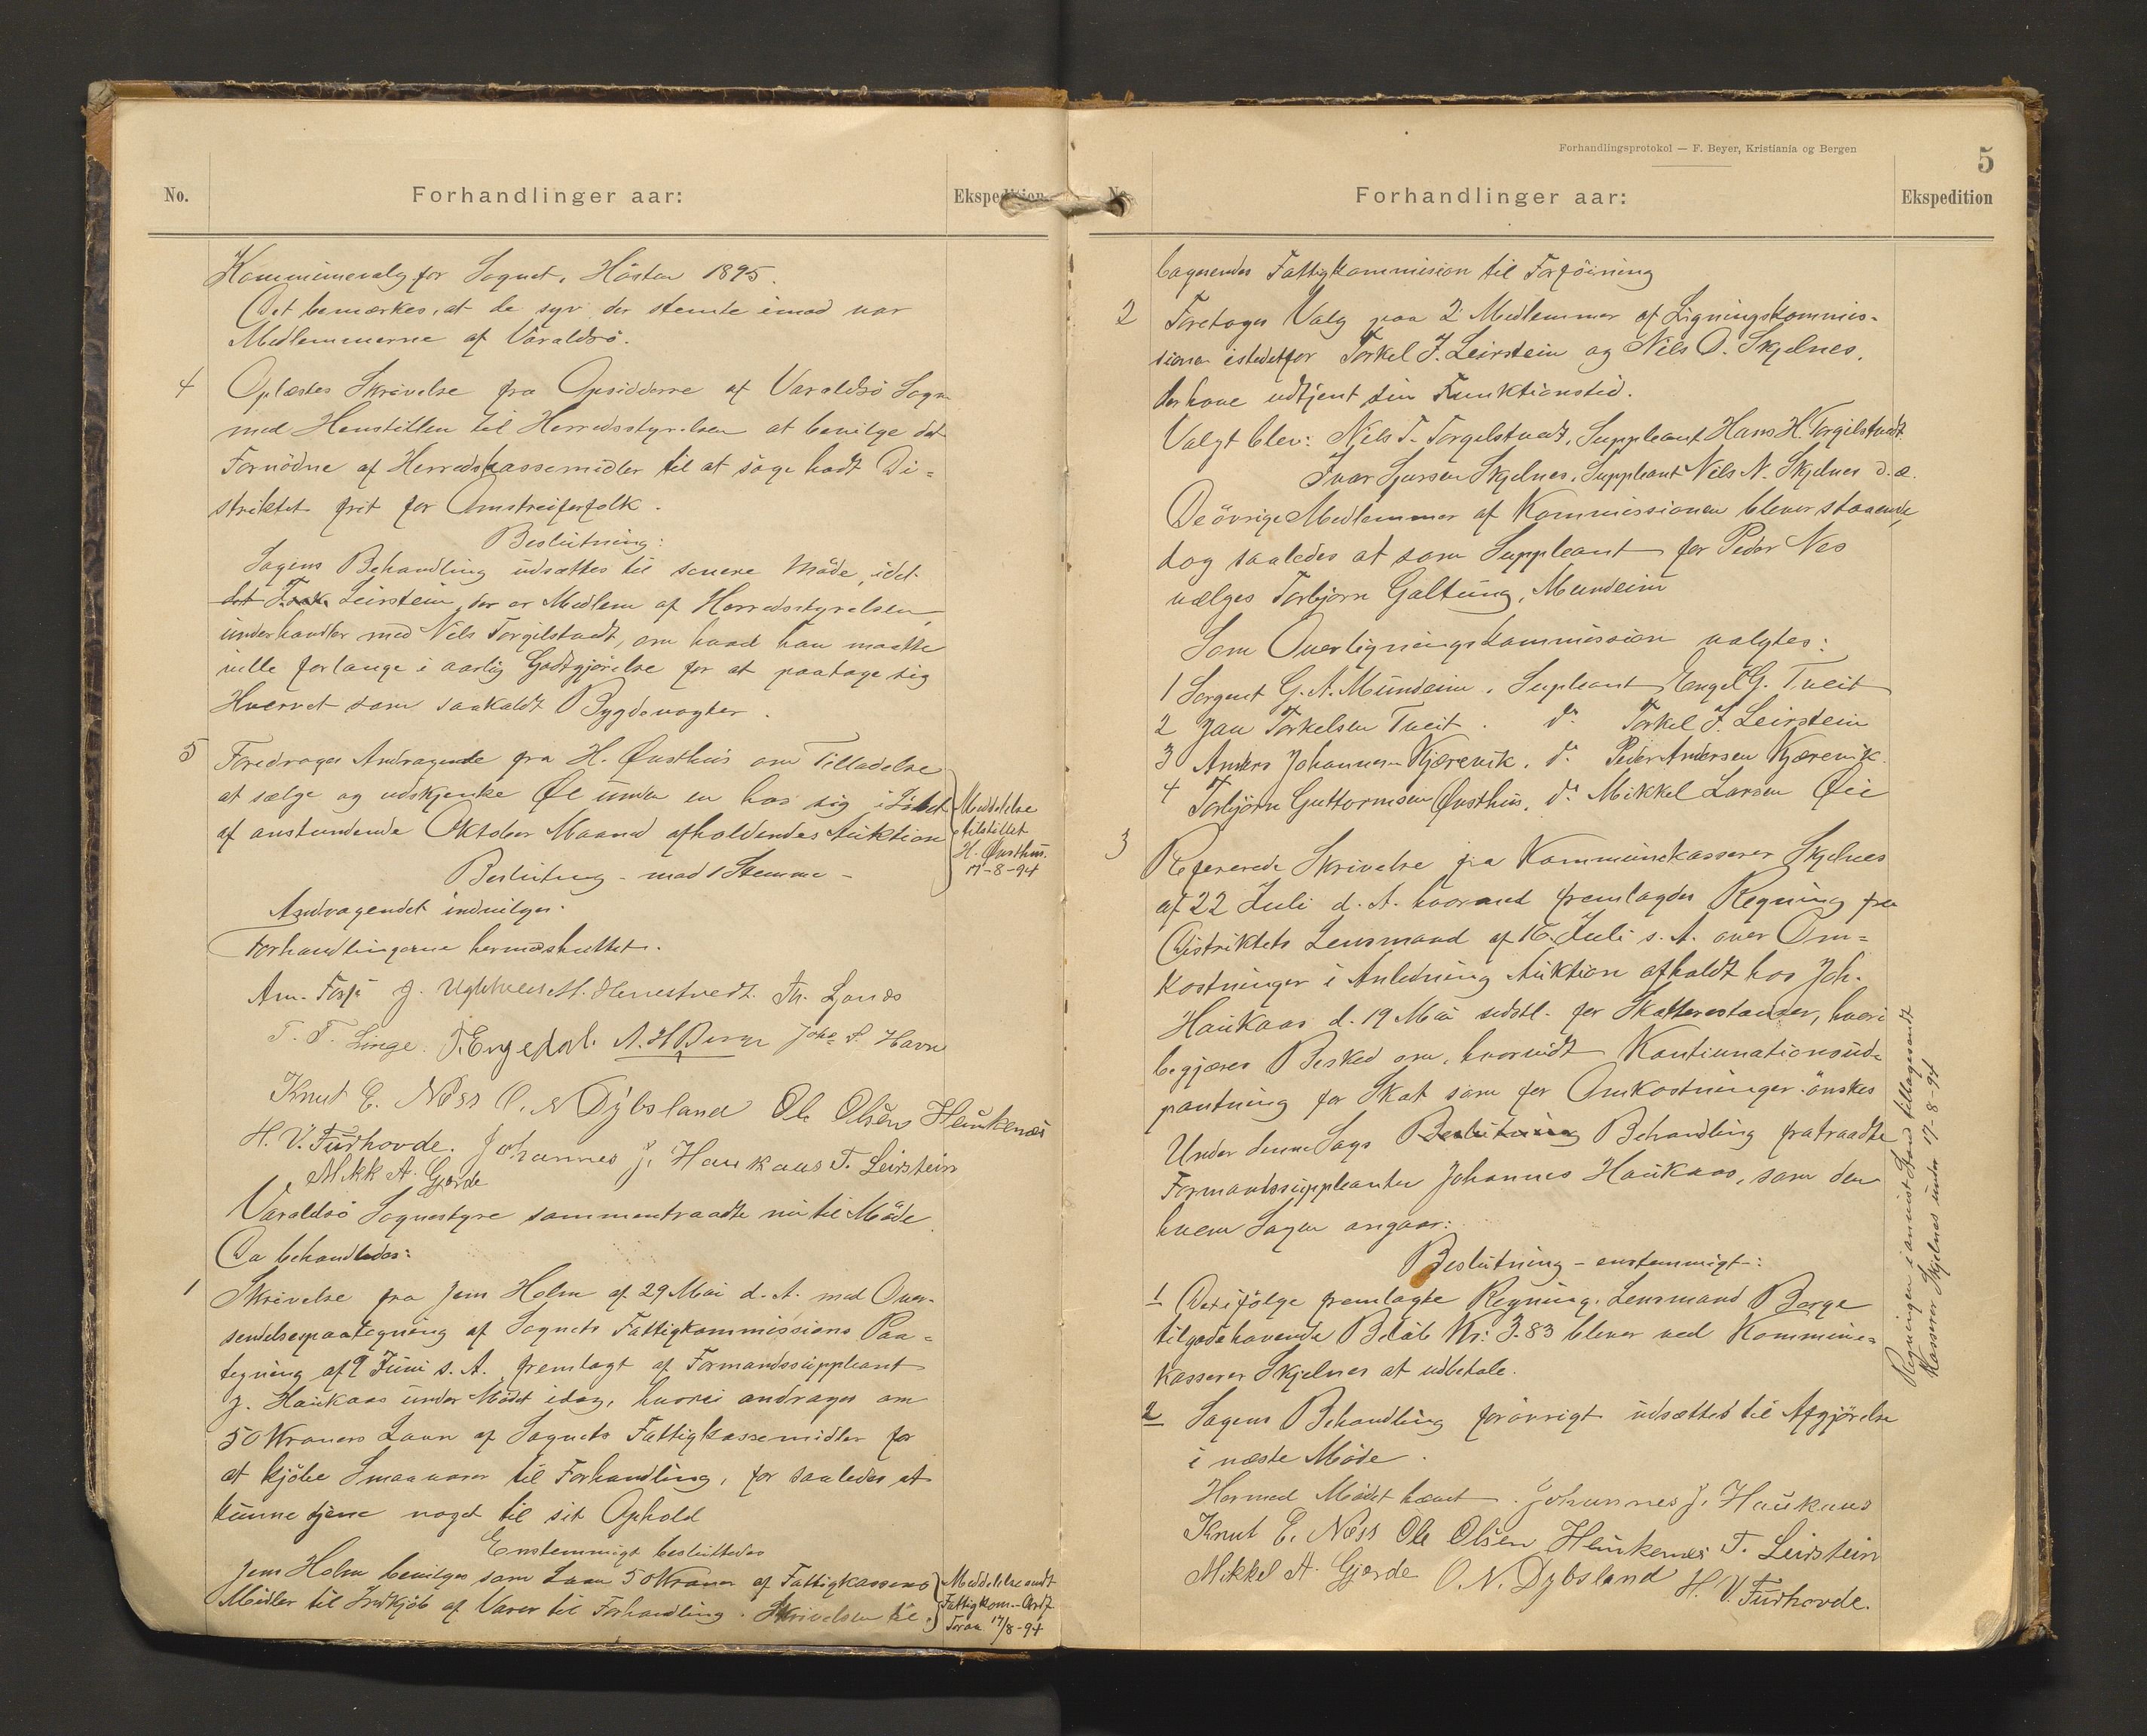 No.
Forhandlinger aar:
Ekspedition
Kommunevalg for Sognet, Hösten 1895.
Det bemærkes, at de syv der stemte imod var
Medlemmerne af Varaldsö.
4 Oplæstes Skrivelse fra Opsidderne af Varaldsö Sogn
med Henstillen til Herredsstyrelsen at bevilge det
Fornödne af Herredskassemidler til at söge hodt Di=
striktet frit for Omstreiferfolk.
Beslutning:
Sagens Behandling udsættes til senere Möde, idet
det Leirstein, der er Medlem af Herredsstyrelsen,
underhandler med Nils Torgilstvedt, om hvad han maatte
ville forlange i aarlig Godtgjörelse for at paatage sig
Hvervet som saakaldt Bygdevagter.
5 Foredroges Andragende fra H. Øvsthus om Tilladelse
at sælge og udskjenke Øl under en hos sig i Löbet
af anstundende Oktober Maaned afholdendes Auktion
Meddelelse
tilstillet
H. Øvsthus.
17-8-94
Beslutning - mod 1 Stemme -
Andragendet indvilges.
Forhandlingerne hermed sluttet.
Am. J. M. Henestvedt. Th. Lonos
T. T. Linge. T. Engedal. A. H. Berge Johs S. Havn
Knut E. Nöss O. N Dybsland Ole Olsen Heukenæs
H. V. Furhovde. Johannes J. Haukaas T. Leirstein
Mikk A. Gjerde
Varaldsö Sognestyre sammentraadte nu til Möde
Da behandledes:
1 Skrivelse fra Jens Holm af 29 Mai d. A. med Over-
sendelsespaategning af Sognets Fattigkommissions Paa=
tegning af 9 Juni s. A. fremlagt af Formandssuppleant
J. Haukaas under Mödet idag, hvori andrages om
50 Kroners Laan af Sognets Fattigkassemidler for
at kjöbe Smaavarer til Forhandling, for saaledes at
kunne tjene noget til sit Ophold
Enstemmigt besluttedes
Jens Holm bevilges som Laan 50 Kroner af Fattigkassens
Midler til Indkjöb af Varer til Forhandling. Skrivelsen til
Meddelelse sendt
Fattigkom.-Ordf
17/8-94
Forhandlingsprotokol — F. Beyer, Kristiania og Bergen
5
No.
Forhandlinger aar:
Ekspedition
bagsendes Fattigkommision til Forföining
2 Foretoges Valg paa 2 Medlemmer af Ligningskommis-
sionen istedetfor Torkel J. Leirstein og Nils O. Skjelnes,
der have udtjent sin Funktionstid.
Valgt blev: Nils T. Torgilstvedt, Suppleant Hans H. Torgilstvedt
Ivar Sjursen Skjelnes, Suppleant Nils N. Skjelnes d. æ.
De övrige Medlemmer af Kommissionen bliver staaende,
dog saaledes at som Suppleant for Peder Nes
vælges Torbjörn Galtung, Mundeim
Som Overligningskommission valgtes:
1 Sergent G. A. Mundeim, Supleant Engel G. Tveit
2 Jan Torkelsen Tveit. do Torkel J. Leirstein
3 Anders Johannesen Kjærevik, do Peder Andersen Kjærevik
4 Torbjörn Guttormsen Øvsthus, do Mikkel Larsen Øie
3 Refererede Skrivelse fra Kommunekasserer Skjelnes
af 22 Juli d. A. hvormed fremlagdes Regning fra
Distriktets Lensmand af 16 Juli s. A. over Om=
kostninger i Anledning Auktion afholdt hos Joh.
Haukaas d. 19 Mai sidstl. for Skatterestancer, hvori
begjæres Besked om, hvorvidt Kontinuationsud=
pantning for Skat som for Omkostninger önskes
Under denne Sags Beslutning Behandling fratraadte
Formandssuppleanten Johannes Haukaas, som den
hvem Sagen angaar:
Beslutning - enstemmigt -:
1 Det ifölge fremlagte Regning, Lensmand Berge
tilgodehavende Belöb Kr: 3.83 bliver ved Kommune=
kasserer Skjelnes at udbetale.
2 Sagens Behandling forövrigt udsættes til Afgjörelse
i næste Möde.
Hermed Mödet hævet. Johannes J. Haukaas
Knut E. Nöss Ole Olsen Heukenæs T. Leirstein
Mikkel A. Gjerde O. N. Dybsland H. V. Furhovde.
Regningen i anvist Stand tilbagesendt
Kasserer Skjelnes under 17-8-94